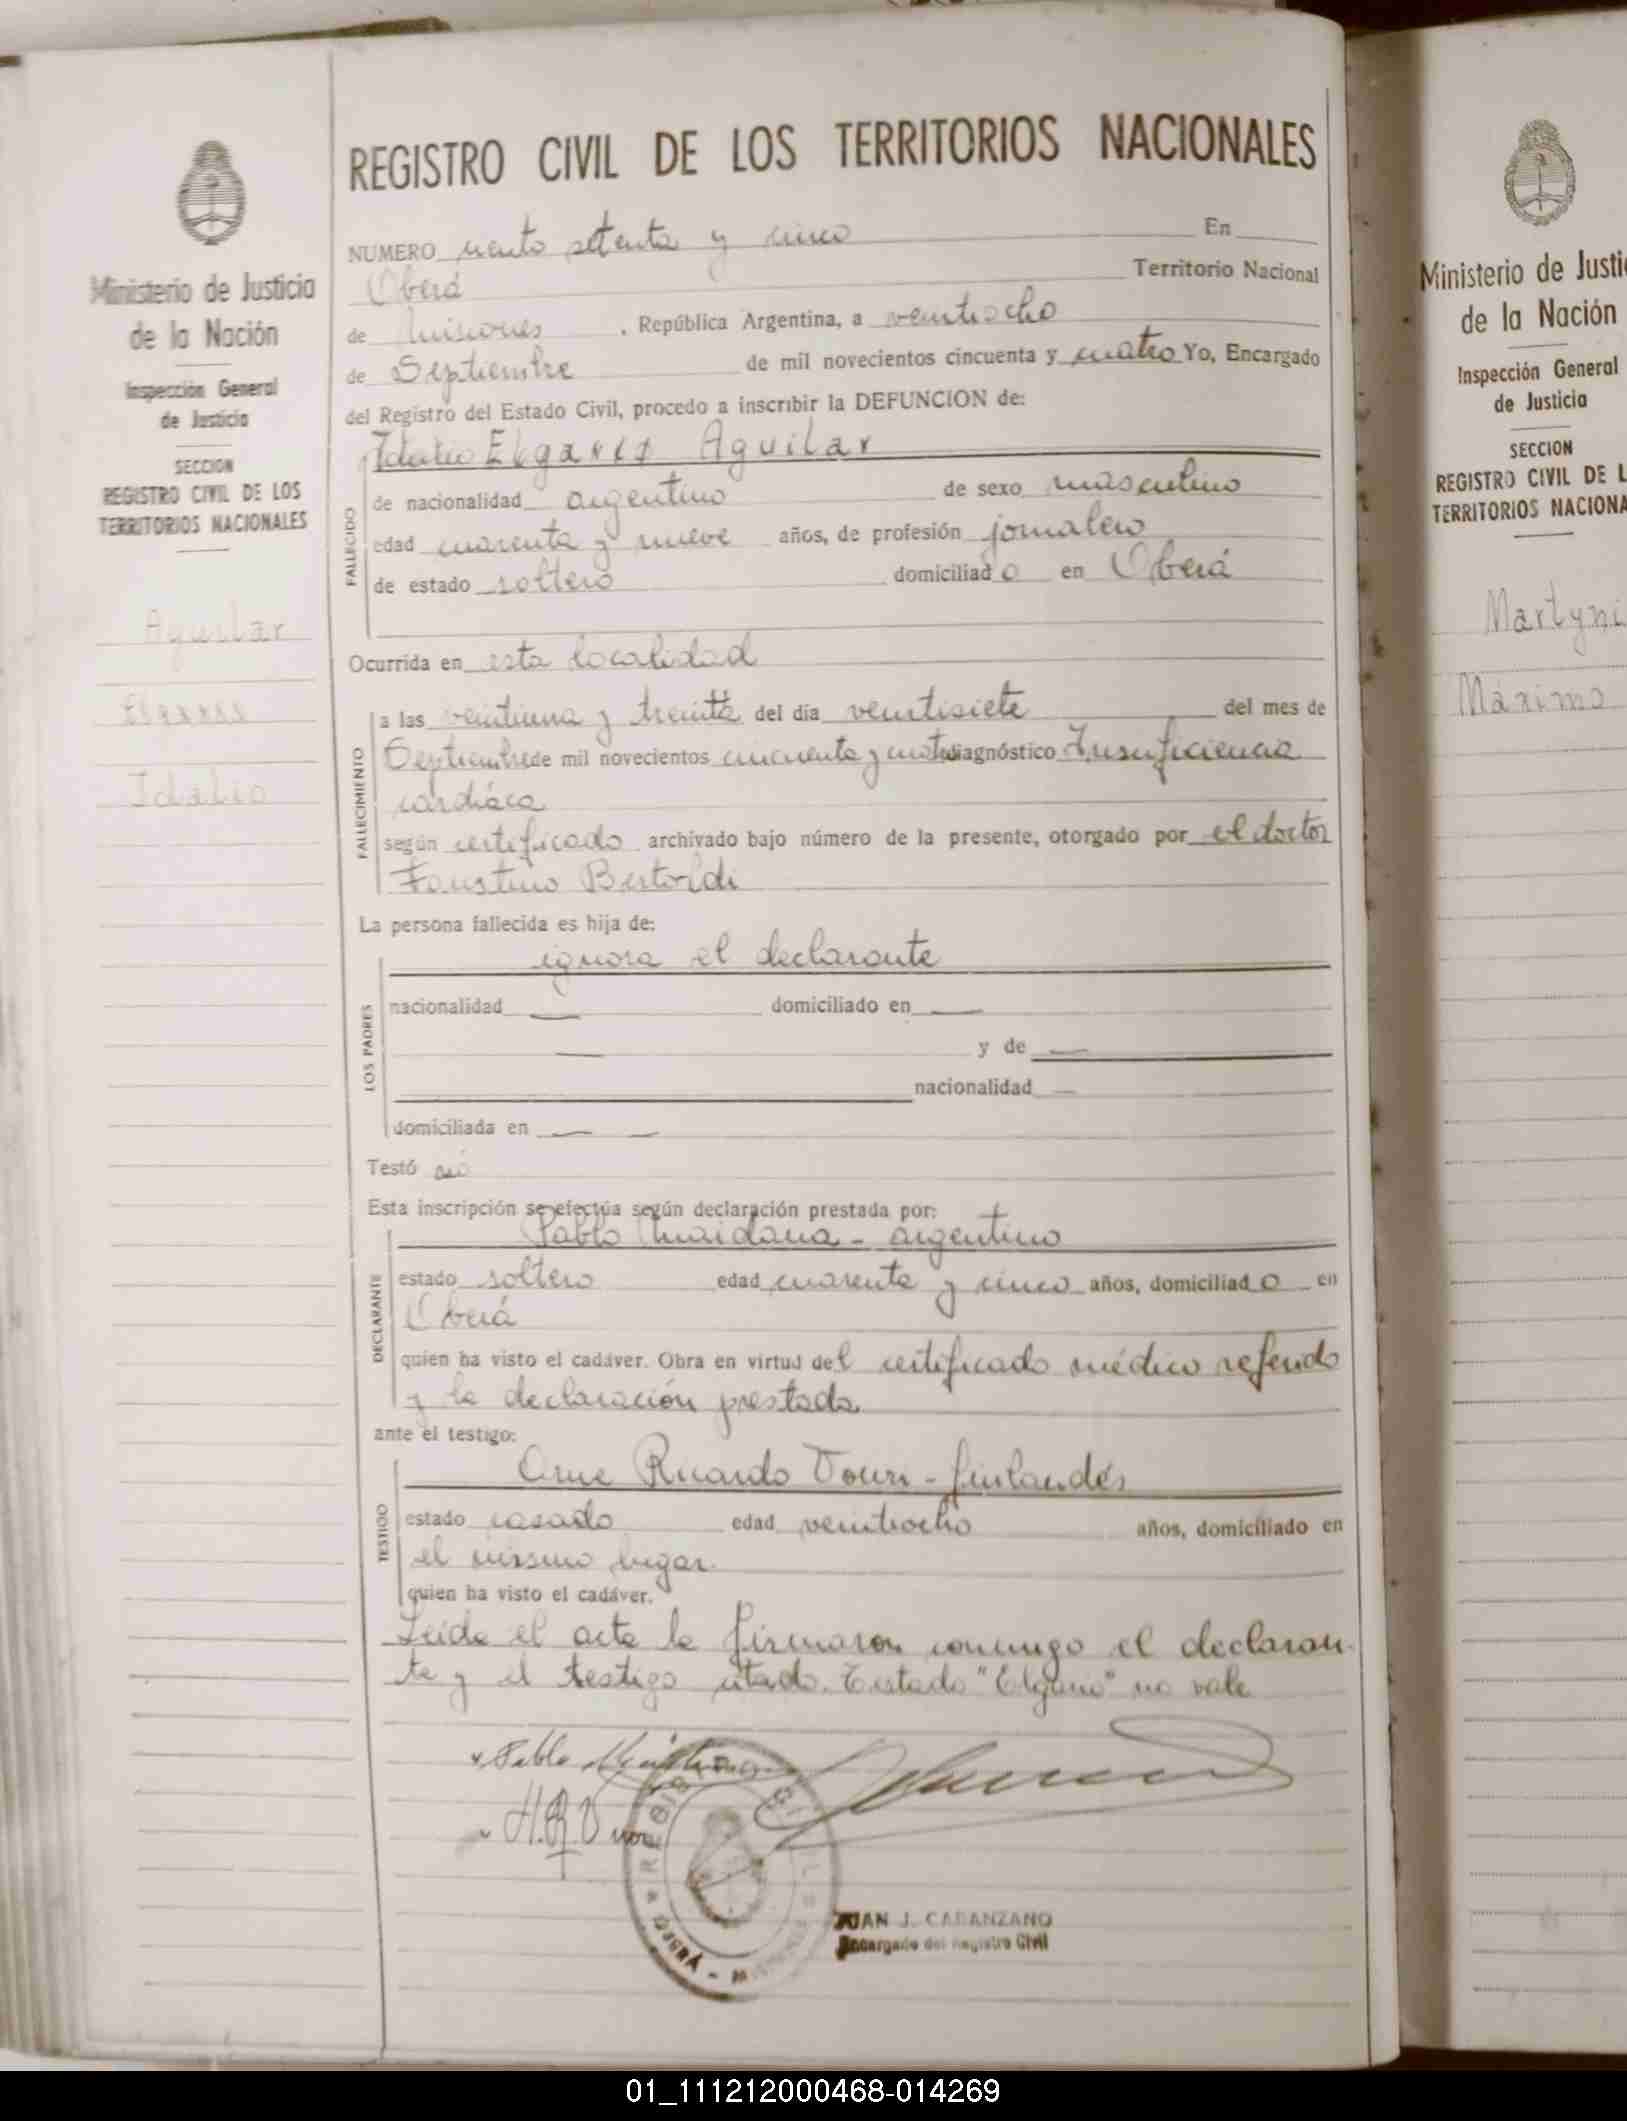 REGISTRO CIVIL DE LOS TERRITORIOS NACIONALES
Ministerio de Justicia
de la Nación
Inspección General
de Justicia
SECCION
REGISTRO CIVIL DE LOS
TERRITORIOS NACIONALES
Aguilar
Idalio
NUMERO ciento setenta y cinco En
Oberá Territorio Nacional
de Misiones, República Argentina, a veintiocho
de Septiembre de mil novecientos cincuenta y cuatro Yo, Encargado
del Registro del Estado Civil, procedo a inscribir la DEFUNCION de:
Idalio Aguilar
FALLECIDO
de nacionalidad argentino de sexo masculino
edad cuarenta y nueve años, de profesión jornalero
de estado soltero domiciliado en Oberá
Ocurrida en esta localidad
FALLECIMIENTO
a las veintiuna y treinta del día veintisiete del mes de
Septiembre de mil novecientos cincuenta y cuatro diagnóstico Insuficiencia
cardíaca
según certificado archivado bajo número de la presente, otorgado por el doctor
Faustino Bertoldi
La persona fallecida es hija de:
LOS PADRES
ignora el declarante
nacionalidad — domiciliado en —
— y de —
nacionalidad —
domiciliada en — —
Testó
Esta inscripción se efectúa según declaración prestada por:
DECLARANTE
Pablo Maidana - argentino
estado soltero edad cuarenta y cinco años, domiciliado en
Oberá
quien ha visto el cadáver. Obra en virtud del certificado médico referido
y la declaración prestada
ante el testigo:
TESTIGO
Ricardo - finlandés
estado casado edad veintiocho años, domiciliado en
el mismo lugar
quien ha visto el cadáver.
Leida el acta la firmaron conmigo el declaran-
te y el testigo citado. Testado no vale
Pablo
REGISTRO CIVIL
JUAN J. CABANZANO
Encargado del Registro Civil
Ministerio de Justi
de la Nación
Inspección General
de Justicia
SECCION
REGISTRO CIVIL DE L
TERRITORIOS NACIONA
Martyni
Máximo
01_111212000468-014269